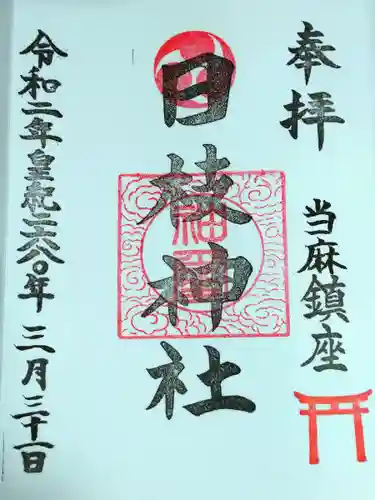 奉拝
当麻鎮座
日枝神社
令和二年皇紀二六八〇年三月三十一日